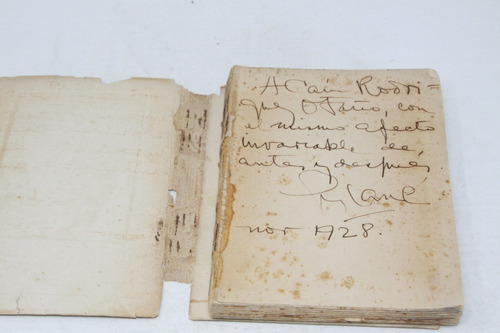 A Caín Rodrí=
guez Otaño, con
el mismo afecto
invariable de
antes y después
nov 1928.